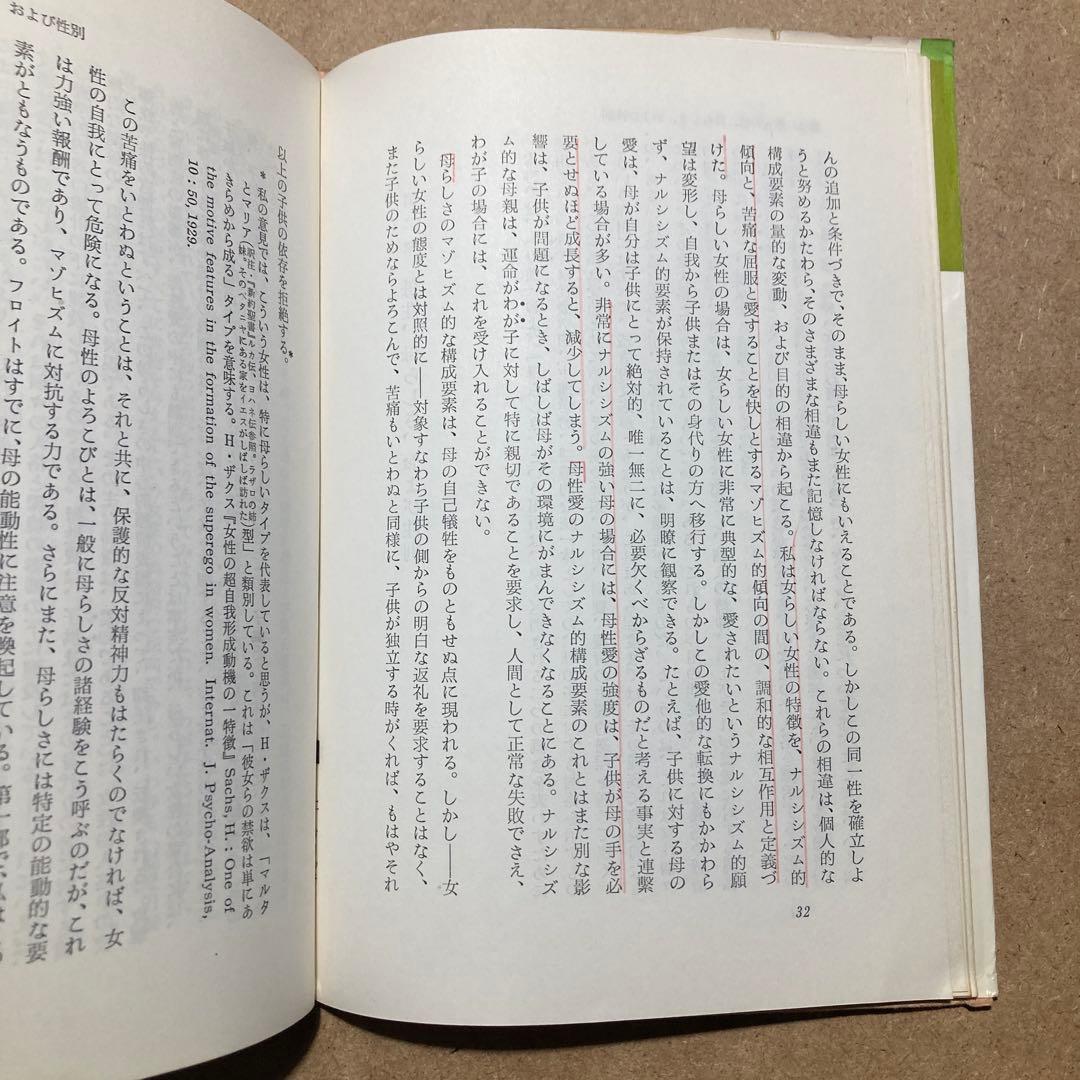 んの追加と条件づきで、そのまま、母らしい女性にもいえることである。しかしこの同一性を確立しよ
うと努めるかたわら、そのさまざまな相違もまた記憶しなければならない。これらの相違は、個人的な
構成要素の量的な変動、および目的の相違から起こる。私は女らしい女性の特徴を、ナルシシズム的
傾向と、苦痛な屈服と愛することを快しとするマゾヒズム的傾向の間の、調和的な相互作用と定義づ
けた。母らしい女性の場合は、女らしい女性に非常に典型的な、愛されたいというナルシシズム的願
望は変形し、自我から子供またはその身代りの方へ移行する。しかしこの愛他的な転換にもかかわら
ず、ナルシシズム的要素が保持されていることは、明瞭に観察できる。たとえば、子供に対する母の
愛は、母が自分は子供にとって絶対的、唯一無二に、必要欠くべからざるものだと考える事実と連繫
している場合が多い。非常にナルシシズムの強い母の場合には、母性愛の強度は、子供が母の手を必
要とせぬほど成長すると、減少してしまう。母性愛のナルシシズム的構成要素のこれとはまた別な影
響は、子供が問題になるとき、しばしば母がその環境にがまんできなくなることにある。ナルシシズ
ム的な母親は、運命がわが子に対して特に親切であることを要求し、人間として正常な失敗でさえ、
わが子の場合には、これを受け入れることができない。
母らしさのマゾヒズム的な構成要素は、母の自己犠牲をものともせぬ点に現われる。しかし——女
らしい女性の態度とは対照的に——対象すなわち子供の側からの明白な返礼を要求することはなく、
また子供のためならよろこんで、苦痛もいとわぬと同様に、子供が独立する時がくれば、もはやそれ
32
および性別
以上の子供の依存を拒絶する。*
* 私の意見では、こういう女性は、特に母らしいタイプを代表していると思うが、H・ザクスは、「マルタ
とマリア(訳注・『新約聖書』ルカ伝、ヨハネ伝参照。ラザロの姉妹。そのベタニヤにある家をイエスがしばしば訪れた)型」と類別している。これは「彼女らの禁欲は単にあ
きらめから成る」タイプを意味する。H・ザクス『女性の超自我形成動機の一特徴』Sachs, H.: One of
the motive features in the formation of the superego in women. Internat. J. Psycho-Analysis,
10 : 50, 1929.
この苦痛をいとわぬということは、それと共に、保護的な反対精神力もはたらくのでなければ、女
性の自我にとって危険になる。母性のよろこびとは、一般に母らしさの諸経験をこう呼ぶのだが、これ
は力強い報酬であり、マゾヒズムに対抗する力である。さらにまた、母らしさには特定の能動的な要
素がともなうものである。フロイトはすでに、母の能動性に注意を喚起している。第一部で